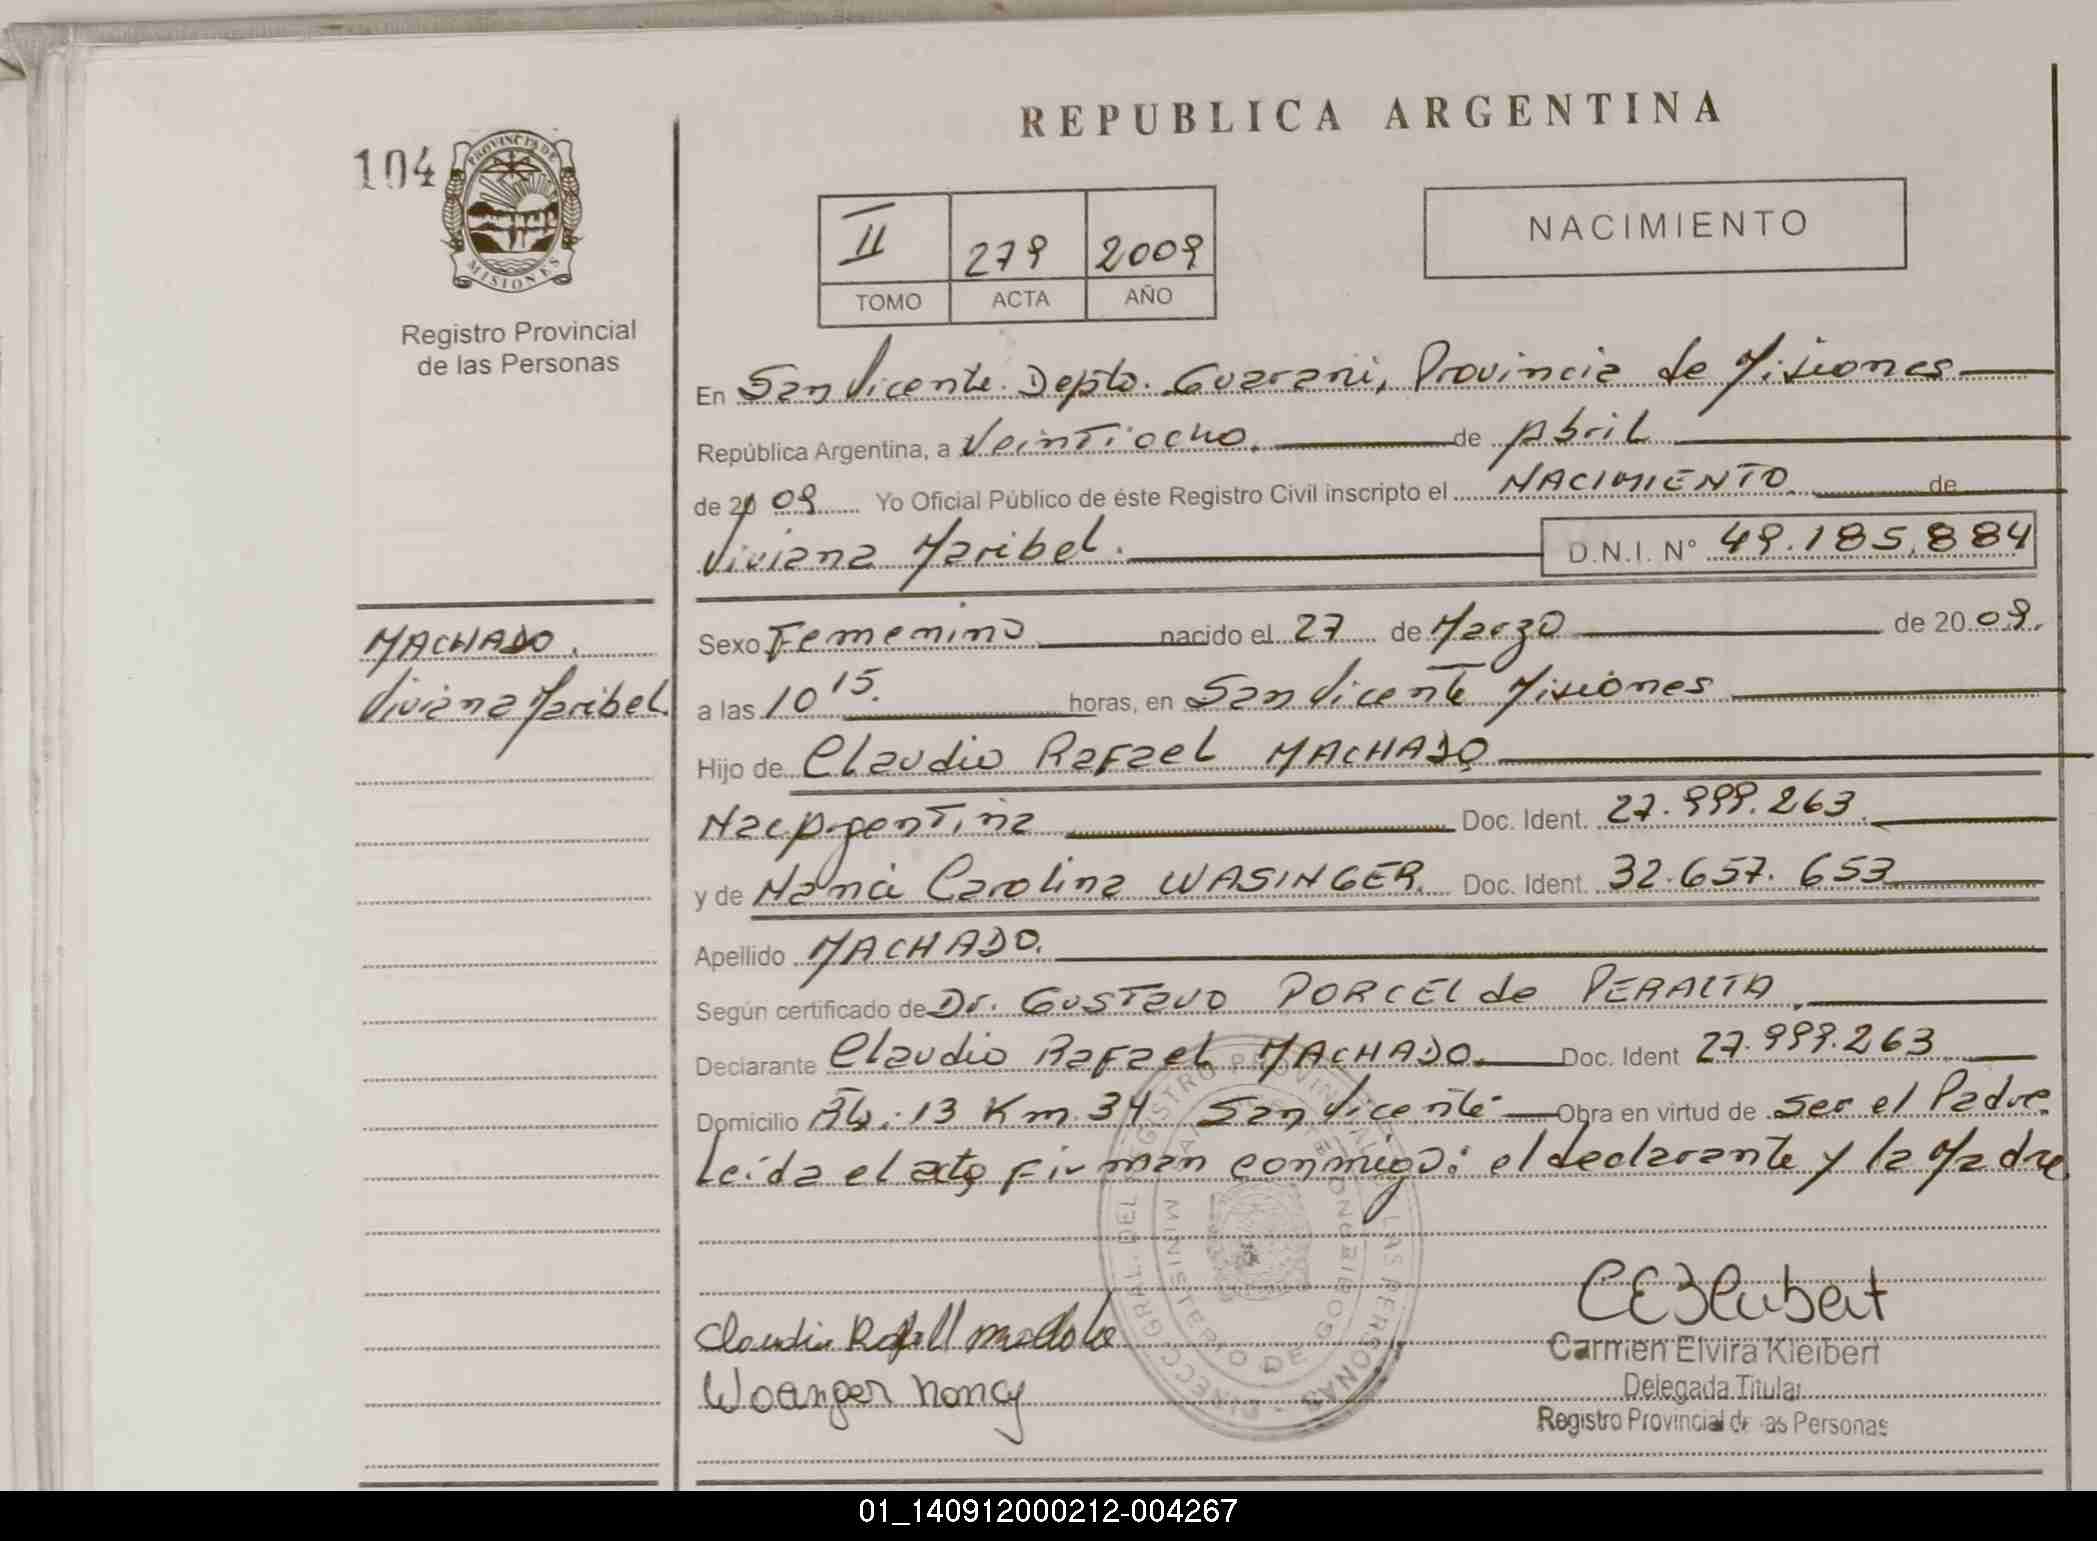 REPUBLICA ARGENTINA
104
PROVINCIA DE
MISIONES
Registro Provincial
de las Personas
II 279 2009
TOMO ACTA AÑO
NACIMIENTO
En San Vicente. Depto. Guarani, Provincia de Misiones
República Argentina, a Veintiocho. de Abril
de 2009 Yo Oficial Público de éste Registro Civil inscripto el NACIMIENTO de
Viviana Maribel. D.N.I. N° 49.185.884
MACHADO.
Viviana Maribel.
Sexo Femenino nacido el 27 de Marzo de 2009.
a las 10 15. horas, en San Vicente Misiones
Hijo de Claudio Rafael MACHADO
Nac Argentina Doc. Ident. 27.999.263.
y de Carolina WASINGER. Doc. Ident. 32.657.653
Apellido MACHADO.
Según certificado de Dr. Gustavo PORCEL de PERALTA.
Declarante Claudio Rafael MACHADO. Doc. Ident 27.999.263
Domicilio 13 Km. 34 San Vicente Obra en virtud de ser el Padre.
Leída el acta firman conmigo: el declarante y la Madre
Claudio Rafael
Nancy
Carmen Elvira Kleibert
Delegada Titular
Registro Provincial de las Personas
01_140912000212-004267